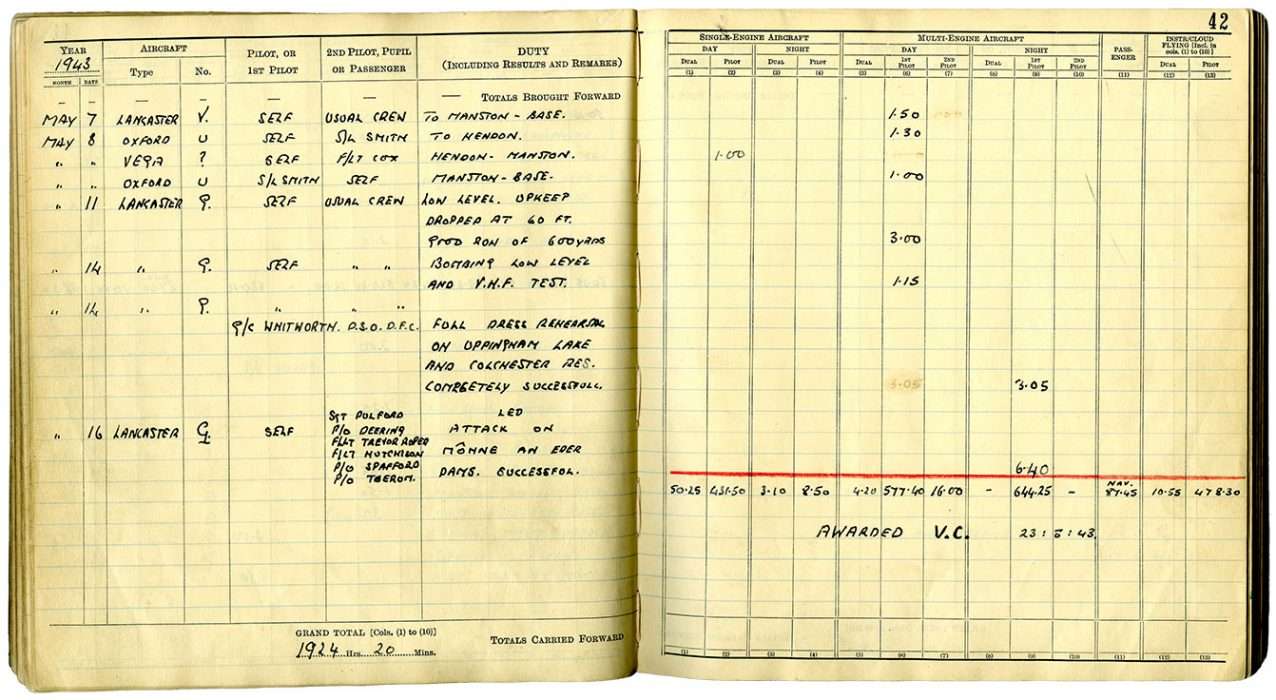 42
YEAR AIRCRAFT PILOT, OR 1ST PILOT 2ND PILOT, PUPIL OR PASSENGER DUTY (INCLUDING RESULTS AND REMARKS) SINGLE-ENGINE AIRCRAFT MULTI-ENGINE AIRCRAFT PASSENGER INSTR/CLOUD FLYING [Incl. in cols. (1) to (10)]
1943 Type No. DAY NIGHT DAY NIGHT
MONTH DATE DUAL PILOT DUAL PILOT DUAL 1ST PILOT 2ND PILOT DUAL 1ST PILOT 2ND PILOT DUAL PILOT
(1) (2) (3) (4) (5) (6) (7) (8) (9) (10) (11) (12) (13)
— — — — — — — TOTALS BROUGHT FORWARD
MAY 7 LANCASTER V. SELF USUAL CREW TO MANSTON - BASE. 1·50
MAY 8 OXFORD U SELF S/L SMITH TO HENDON. 1·30
" " VEGA ? SELF F/LT COX HENDON - MANSTON. 1·00
" " OXFORD U S/L SMITH SELF MANSTON - BASE. 1·00
" 11 LANCASTER G. SELF USUAL CREW LOW LEVEL. UPKEEP
DROPPED AT 60 FT.
GOOD RUN OF 600 YARDS 3·00
" 14 " G. SELF " " BOMBING LOW LEVEL
AND V.H.F. TEST. 1·15
" 14 " G. " " "
G/C WHITWORTH. D.S.O. D.F.C. FULL DRESS REHEARSAL
ON UPPINGHAM LAKE
AND COLCHESTER RES.
COMPLETELY SUCCESSFULL. 3·05 3·05
SGT PULFORD LED
" 16 LANCASTER G. SELF P/O DEERING ATTACK ON
F/LT TREVOR ROPER
F/LT HUTCHISON MÔHNE AN EDER
P/O SPAFFORD DAMS. SUCCESSFUL. 6·40
P/O TAERUM.
50·25 431·50 3·10 8·50 4·20 577·40 16·00 - 644·25 - NAV. 87·45 10·55 478·30
AWARDED V.C. 23 : 5 : 43.
GRAND TOTAL [Cols. (1) to (10)]
1924 Hrs. 20 Mins. TOTALS CARRIED FORWARD
(1) (2) (3) (4) (5) (6) (7) (8) (9) (10) (11) (12) (13)